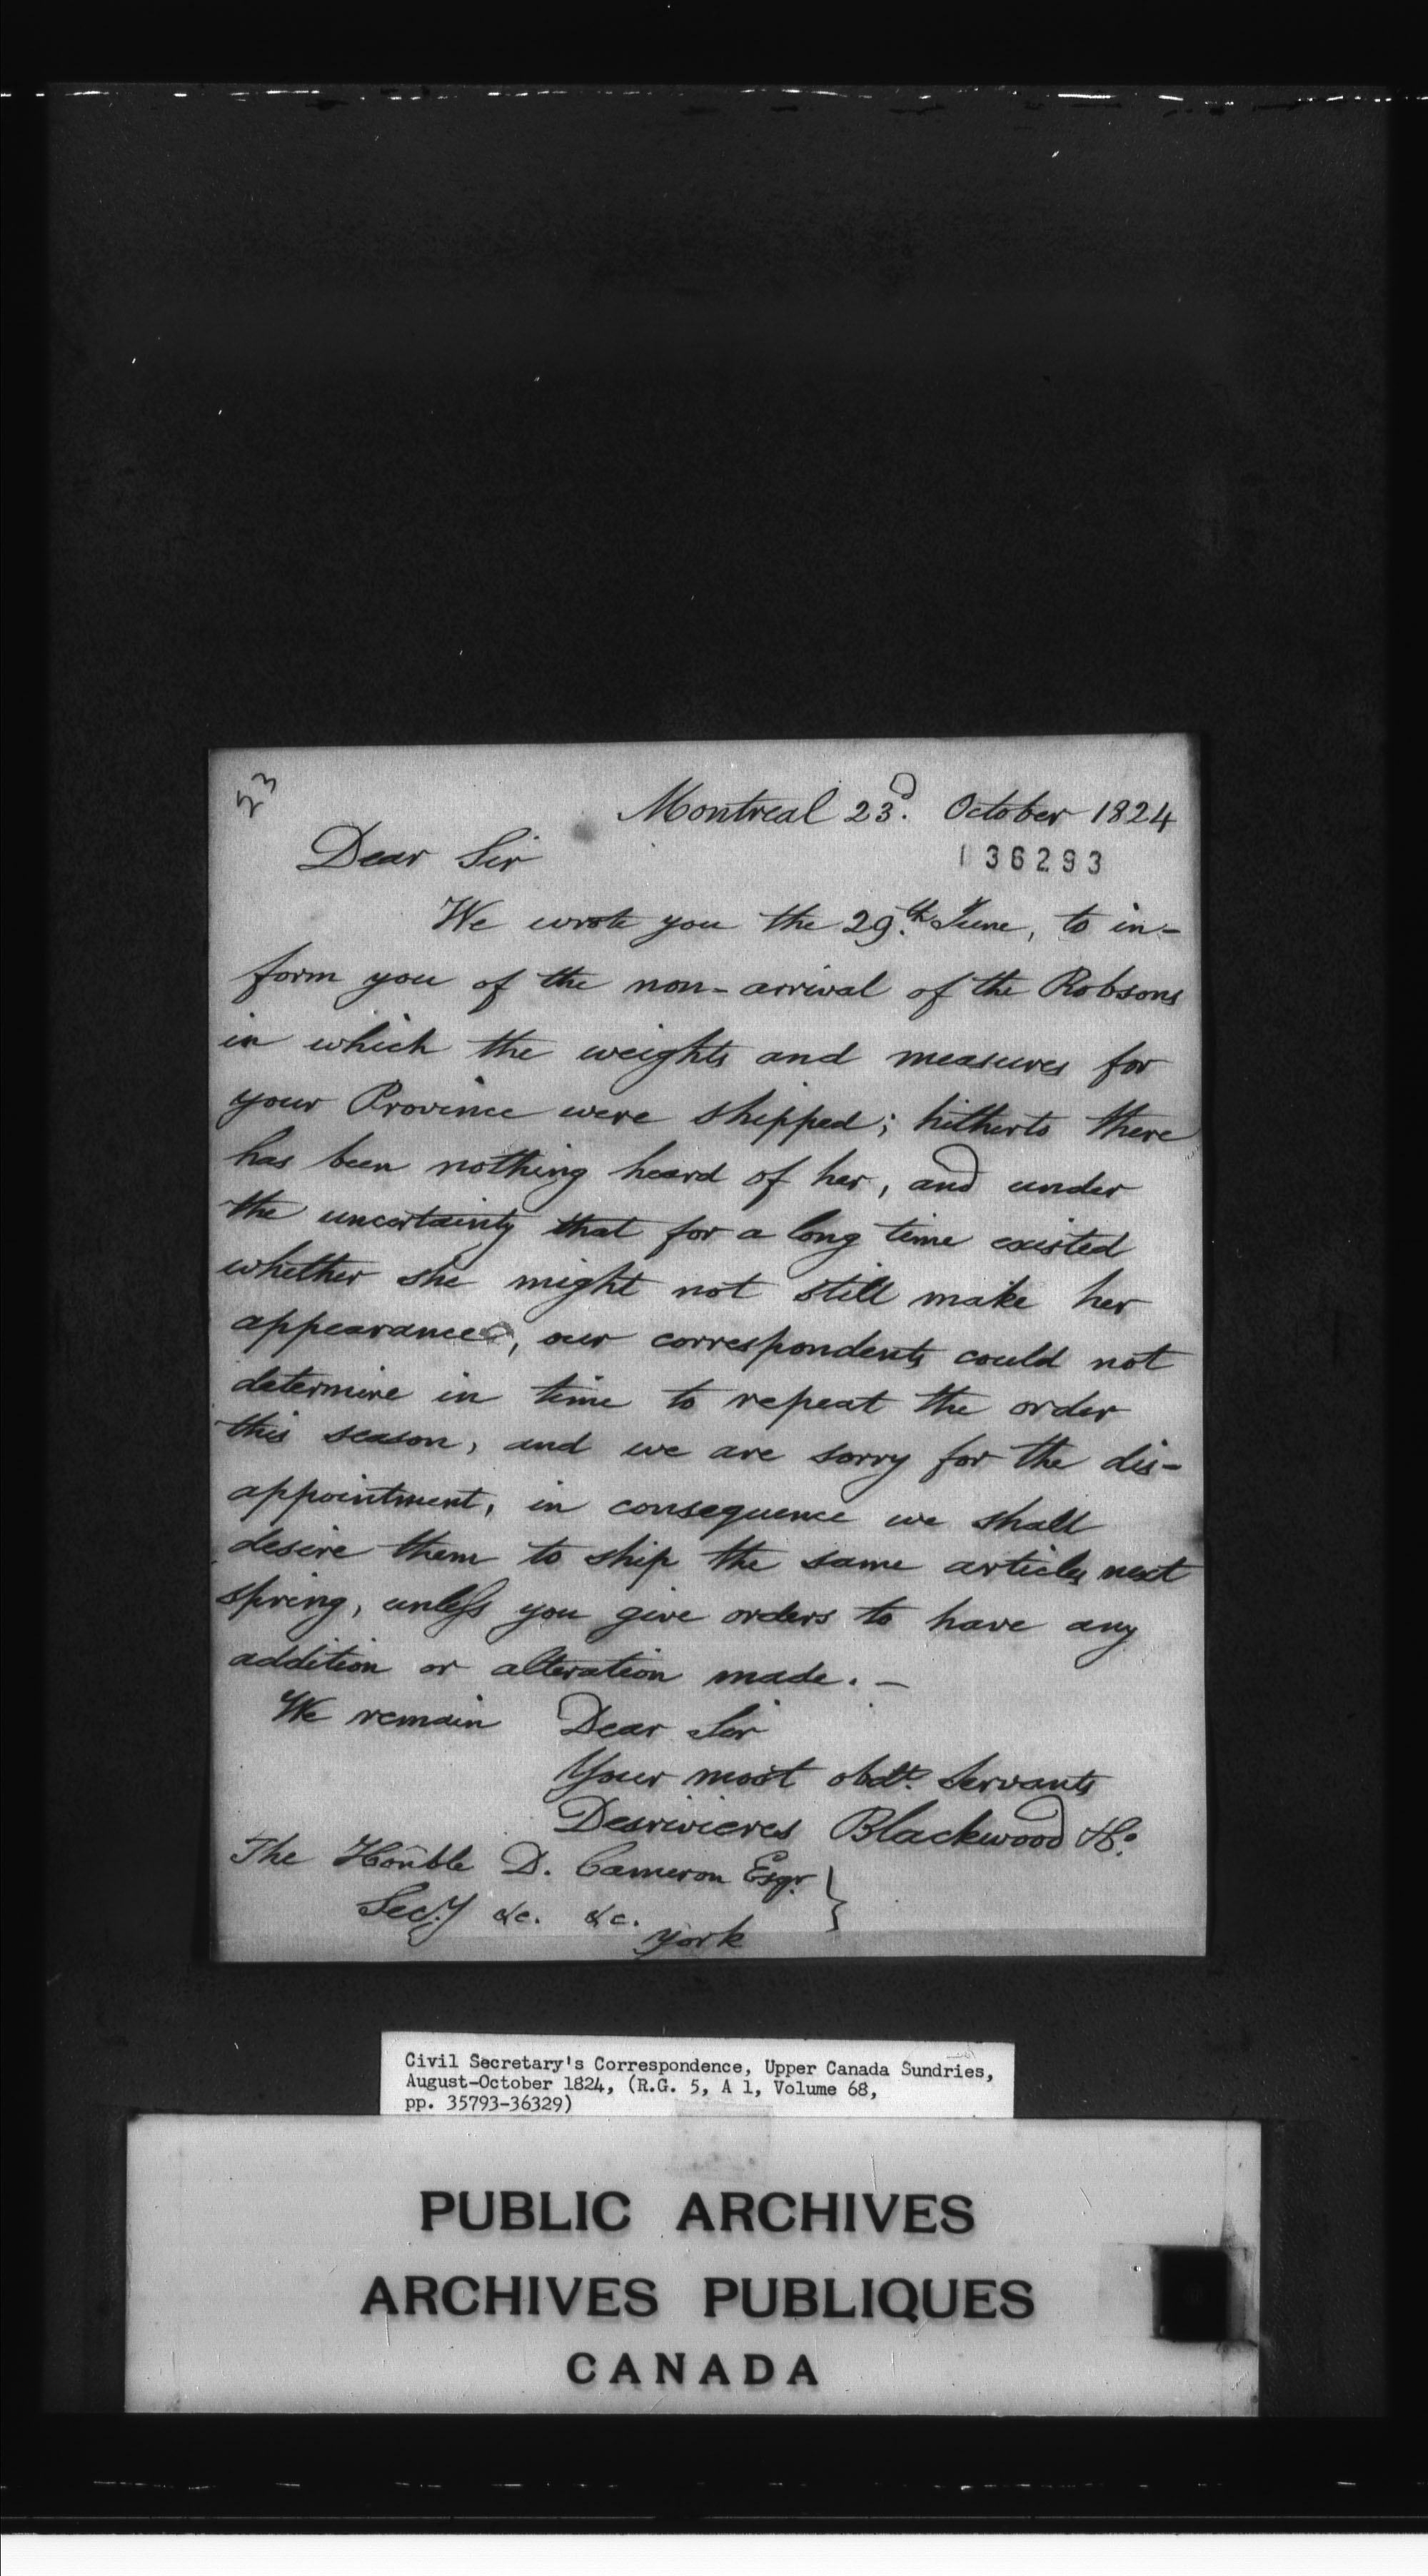 23
Montreal 23d. October 1824
Dear Sir
36293
We wrote you the 29.th June, to in-
form you of the non-arrival of the Robsons
in which the weights and measures for
your Province were shipped; hitherto there
has been nothing heard of her, and under
the uncertainty that for a long time existed
whether she might not still make her
appearance, our correspondents could not
determine in time to repeat the order
this season, and we are sorry for the dis-
appointment, in consequence we shall
desire them to ship the same articles next
spring, unless you give orders to have any
addition or alteration made. -
We remain Dear Sir
Your most obdt. Servants
Desrivieres Blackwood & Co.
The Honble D. Cameron Esqr. }
Secy &c. &c.
York
Civil Secretary's Correspondence, Upper Canada Sundries,
August-October 1824, (R.G. 5, A 1, Volume 68,
pp. 35793-36329)
PUBLIC ARCHIVES
ARCHIVES PUBLIQUES
CANADA